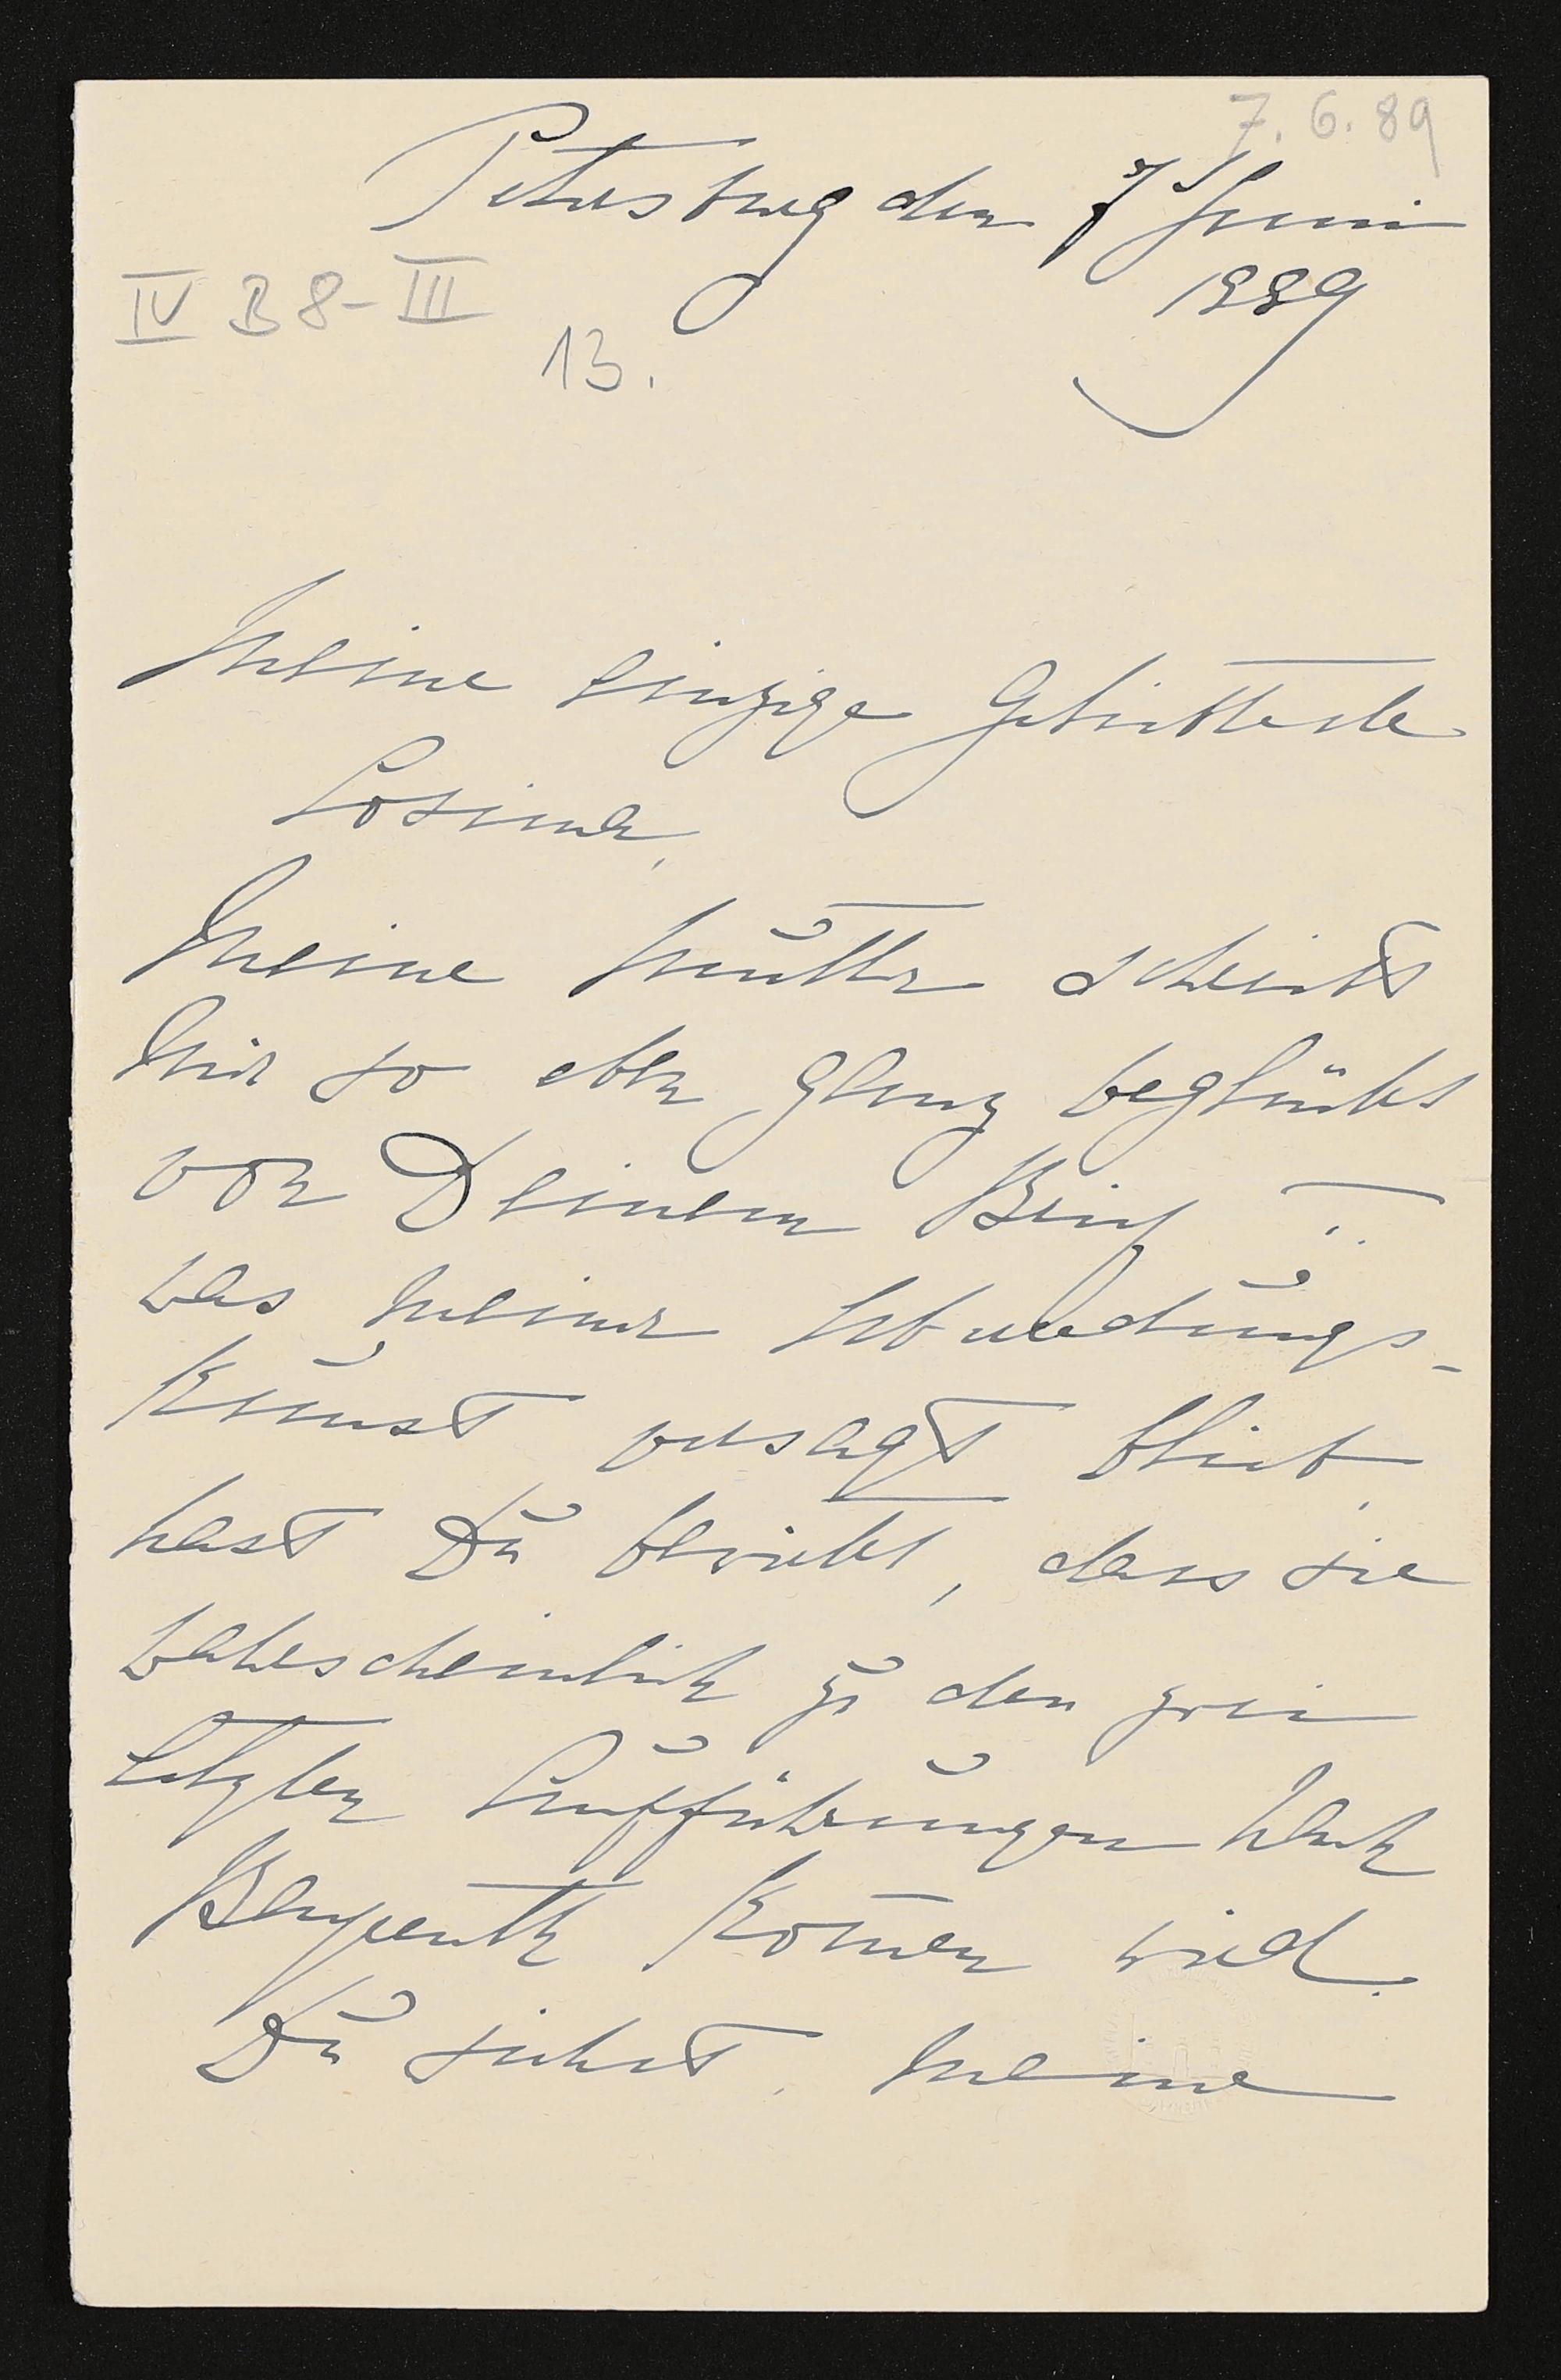 7. 6. 89
Petersburg den 7 Juni
1889
IV B 8-III
13.
Meine einzige Geliebteste
Cosima,
Meine Mutter schreibt
mir so eben ganz beglückt
von Deinem Brief ...
was meiner
Kunst versagt blieb,
hast Du bewirkt, dass sie
wahrscheinlich zu den zwei
letzten Aufführungen nach
Bayreuth kom̄en wird.
Du siehst, meine